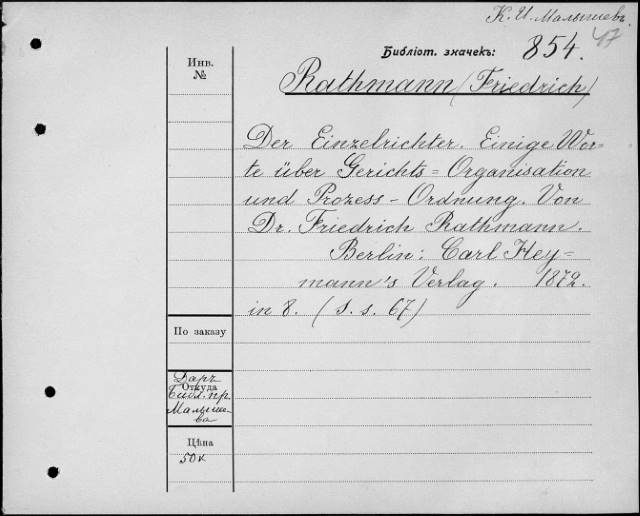 К. И. Малышевъ.
47
Библіот. значекъ: 854.
Инв.
№
Rathmann (Friedrich)
Der Einzelrichter. Einige Wor-
te über Gerichts=Organisation
und Prozess-Ordnung. Von
Dr. Friedrich Rathmann.
Berlin: Carl Hey=
mann's Verlag. 1872.
in 8. (S. s. 67)
По заказу
Даръ
Откуда
Библ. пр.
Малыше-
ва
Цѣна
50 к